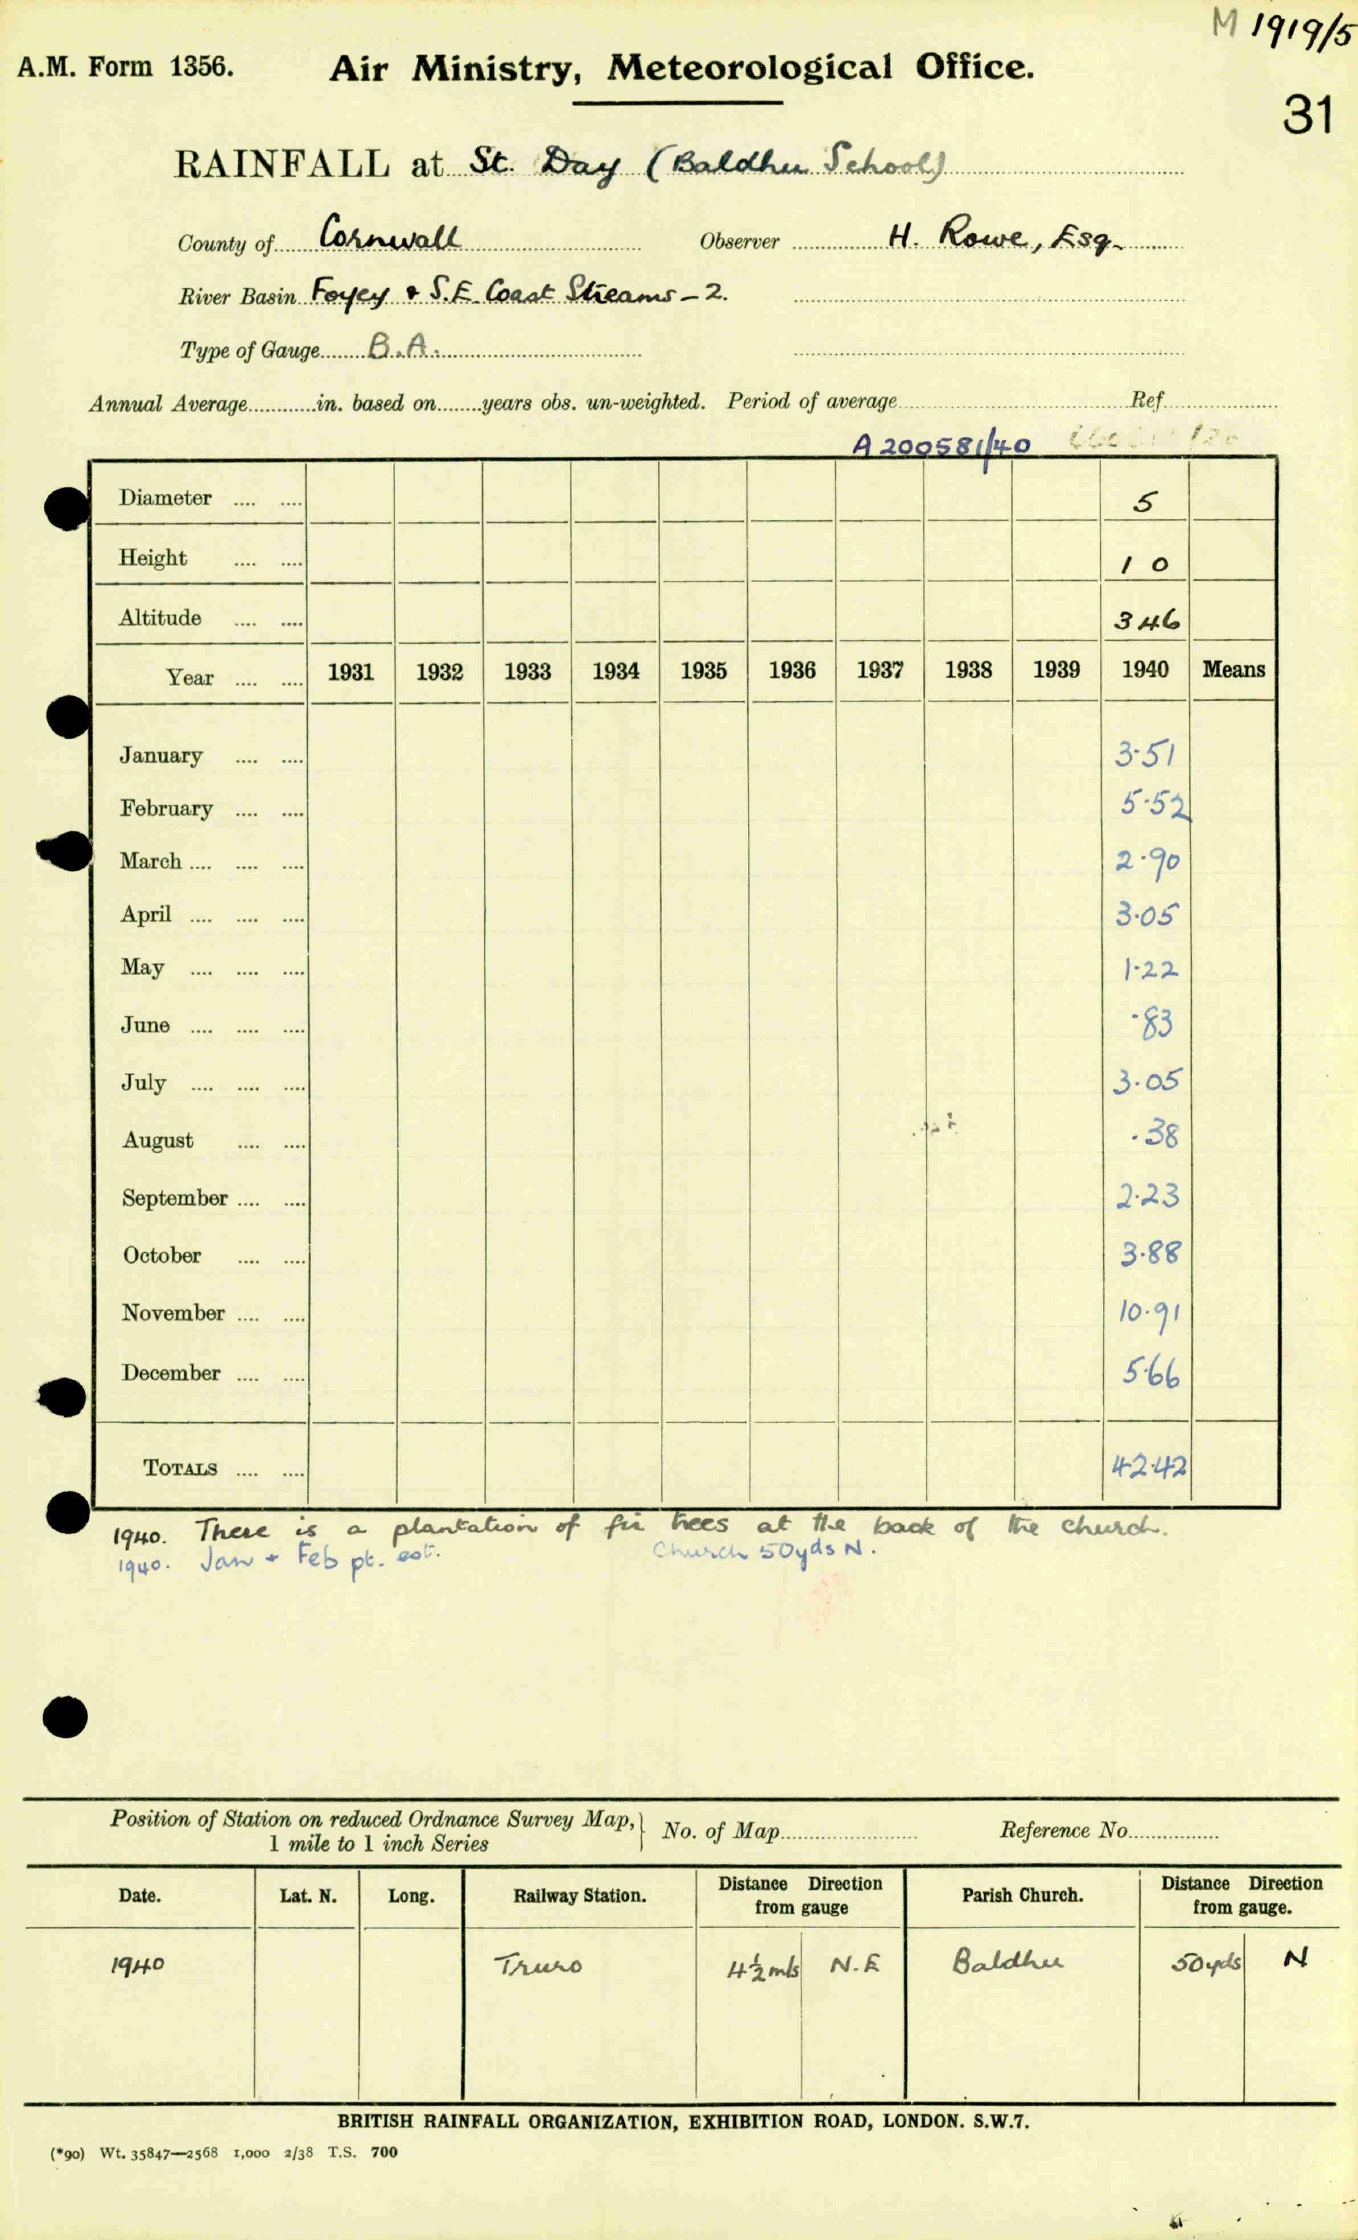 M 1919/5
A.M. Form 1356. Air Ministry, Meteorological Office.
31
RAINFALL at St. Day (Baldhu School)
County of Cornwall Observer H. Rowe, Esq.
River Basin Fowey & S.E. Coast Streams - 2.
Type of Gauge B.A.
Annual Average in. based on years obs. un-weighted. Period of average Ref
A200581/40
Diameter 5
Height 1 0
Altitude 346
Year 1931 1932 1933 1934 1935 1936 1937 1938 1939 1940 Means
January 3.51
February 5.52
March 2.90
April 3.05
May 1.22
June .83
July 3.05
August .38
September 2.23
October 3.88
November 10.91
December 5.66
TOTALS 42.42
1940. There is a plantation of fir trees at the back of the church.
1940. Jan & Feb pt. est. Church 50yds N.
Position of Station on reduced Ordnance Survey Map, } No. of Map Reference No.
1 mile to 1 inch Series
Date. Lat. N. Long. Railway Station. Distance Direction from gauge Parish Church. Distance Direction from gauge.
1940 Truro 4½ mls N.E Baldhu 50yds N
BRITISH RAINFALL ORGANIZATION, EXHIBITION ROAD, LONDON. S.W.7.
(*90) Wt. 35847—2568 1,000 2/38 T.S. 700